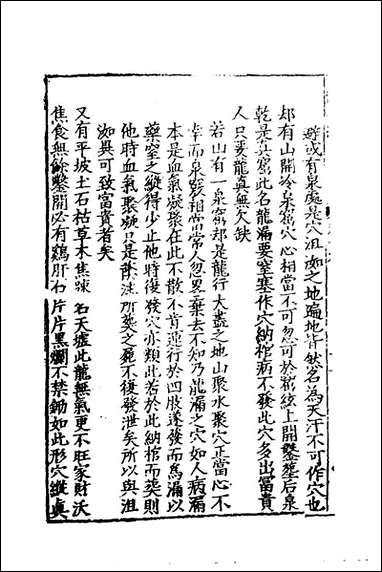 癖或有泉處是穴沮洳之地遍地皆然名為天汗不可作穴也
却有山開冷泉窩穴心相當不可忽可於說絞上開鑿塟后泉
乾是真窩此名龍漏要窒塞作穴納棺病不發此穴多出富貴
人只要龍真無欠缺
若山有一泉窩却是龍行大盡之地山聚水聚穴正當心不
幸而泉竅相當常人忽畧棄去不知乃龍漏之穴如人病漏
本是血氣凝聚在此不散不肯運行於四肢遂發而為漏以
藥窒之縱得少止他時復發穴亦類此若於此納棺而葬則
他時血氣聚凝只是散注所葬之菀不復發泄矣所以與沮
洳異可致富貴者矣
又有平坡土石枯草木焦踈名天墟此龍無氣更不旺家財沃
焦食無餘鑿開必有鷄肝石片片黑爛不禁鋤如此形穴縱真